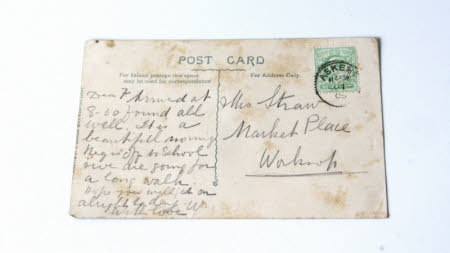 POST CARD
For Inland postage this space
may be used for correspondence
For Address Only.
ASKERN
Dear F Arrived at
8-30 found all
well. It is a
beautiful morning
Reg is off to School
& we are going for
a long walk
Hope you will get on
alright today
With love
Mrs Straw
Market Place
Worksop